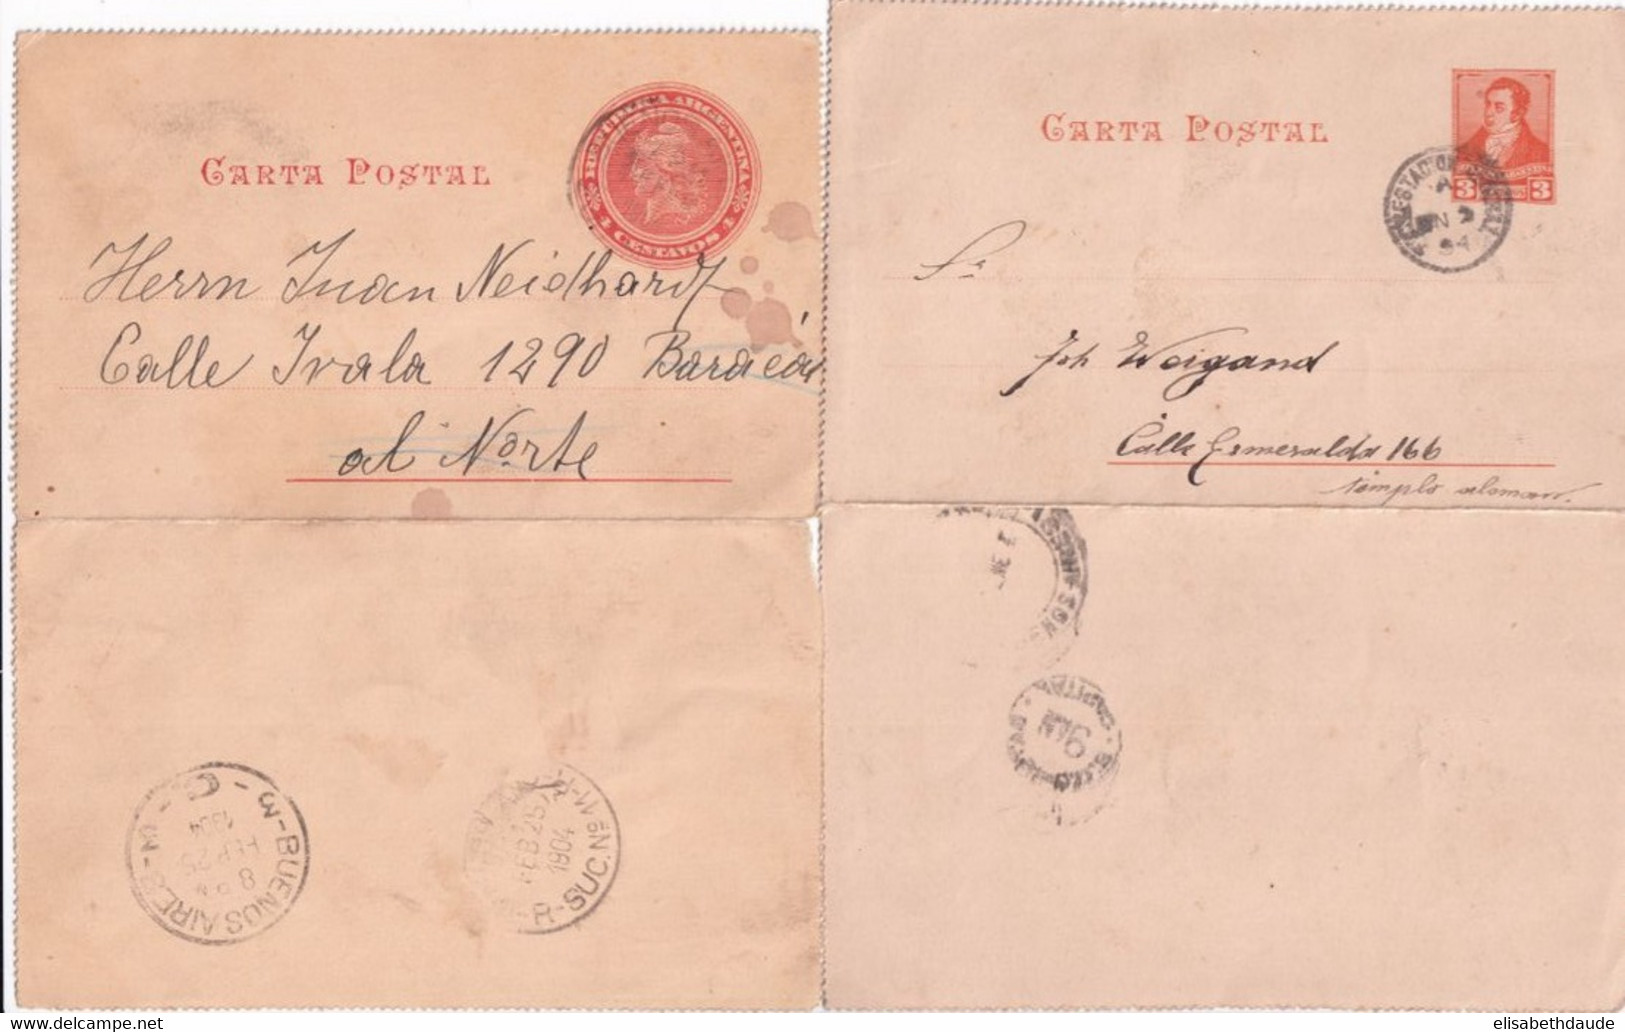 CARTA POSTAL
REPUBLICA ARGENTINA
4 CENTAVOS 4
Herrn Juan Neidhardt
Calle Ivala 1290 Baracas
al Norte
BUENOS AIRES
8 P.M
FEB 25
1904
FEB 25
1904
SUC. Nº
CARTA POSTAL
3 3
ESTACION
94
Sr
Joh Weigand
Calle Esmeralda 166
templo aleman.
CAPITAL
9
JAN
elisabethdaude